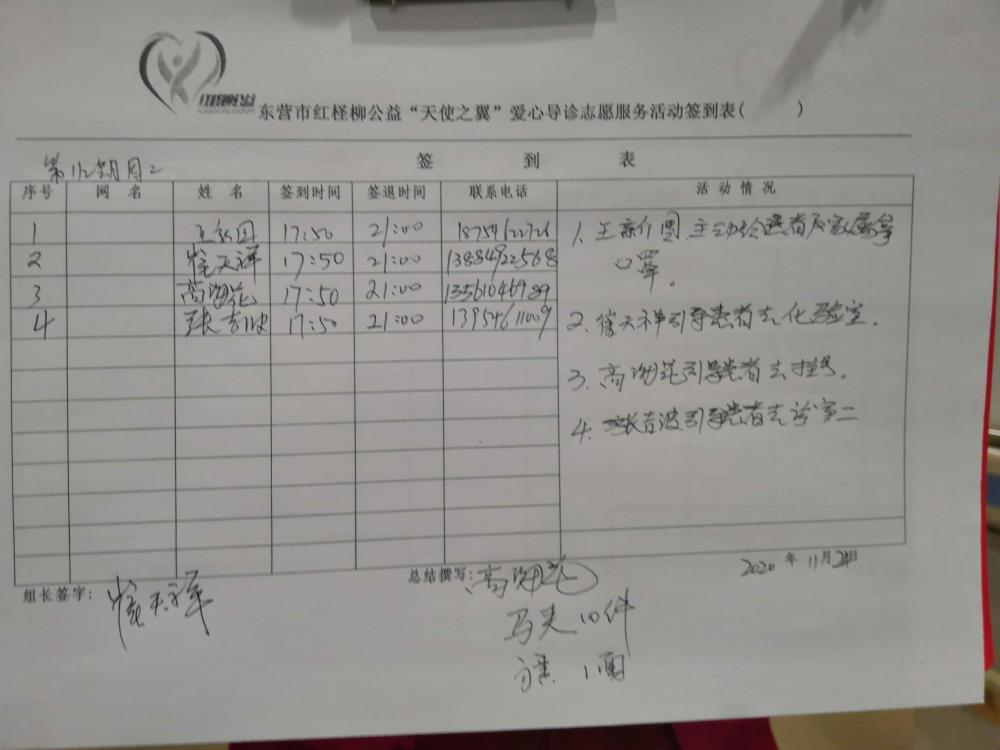 红柽柳公益
东营市红柽柳公益“天使之翼”爱心导诊志愿服务活动签到表( )
签 到 表
周2
序号 网 名 姓 名 签到时间 签退时间 联系电话 活 动 情 况
1 17:50 21:00 18754622726
2 崔天祥 17:50 21:00 13884922568
3 高海花 17:50 21:00 13561046989
4 张吉波 17:50 21:00 13954611009
1. 主动给患者及家属拿
口罩。
2. 崔天祥引导患者去化验室。
3. 高海花引导患者去挂号。
4. 张吉波引导患者去诊室二
2020 年 11月24日
组长签字: 崔天祥
总结撰写: 高海花
马夹10件
1面